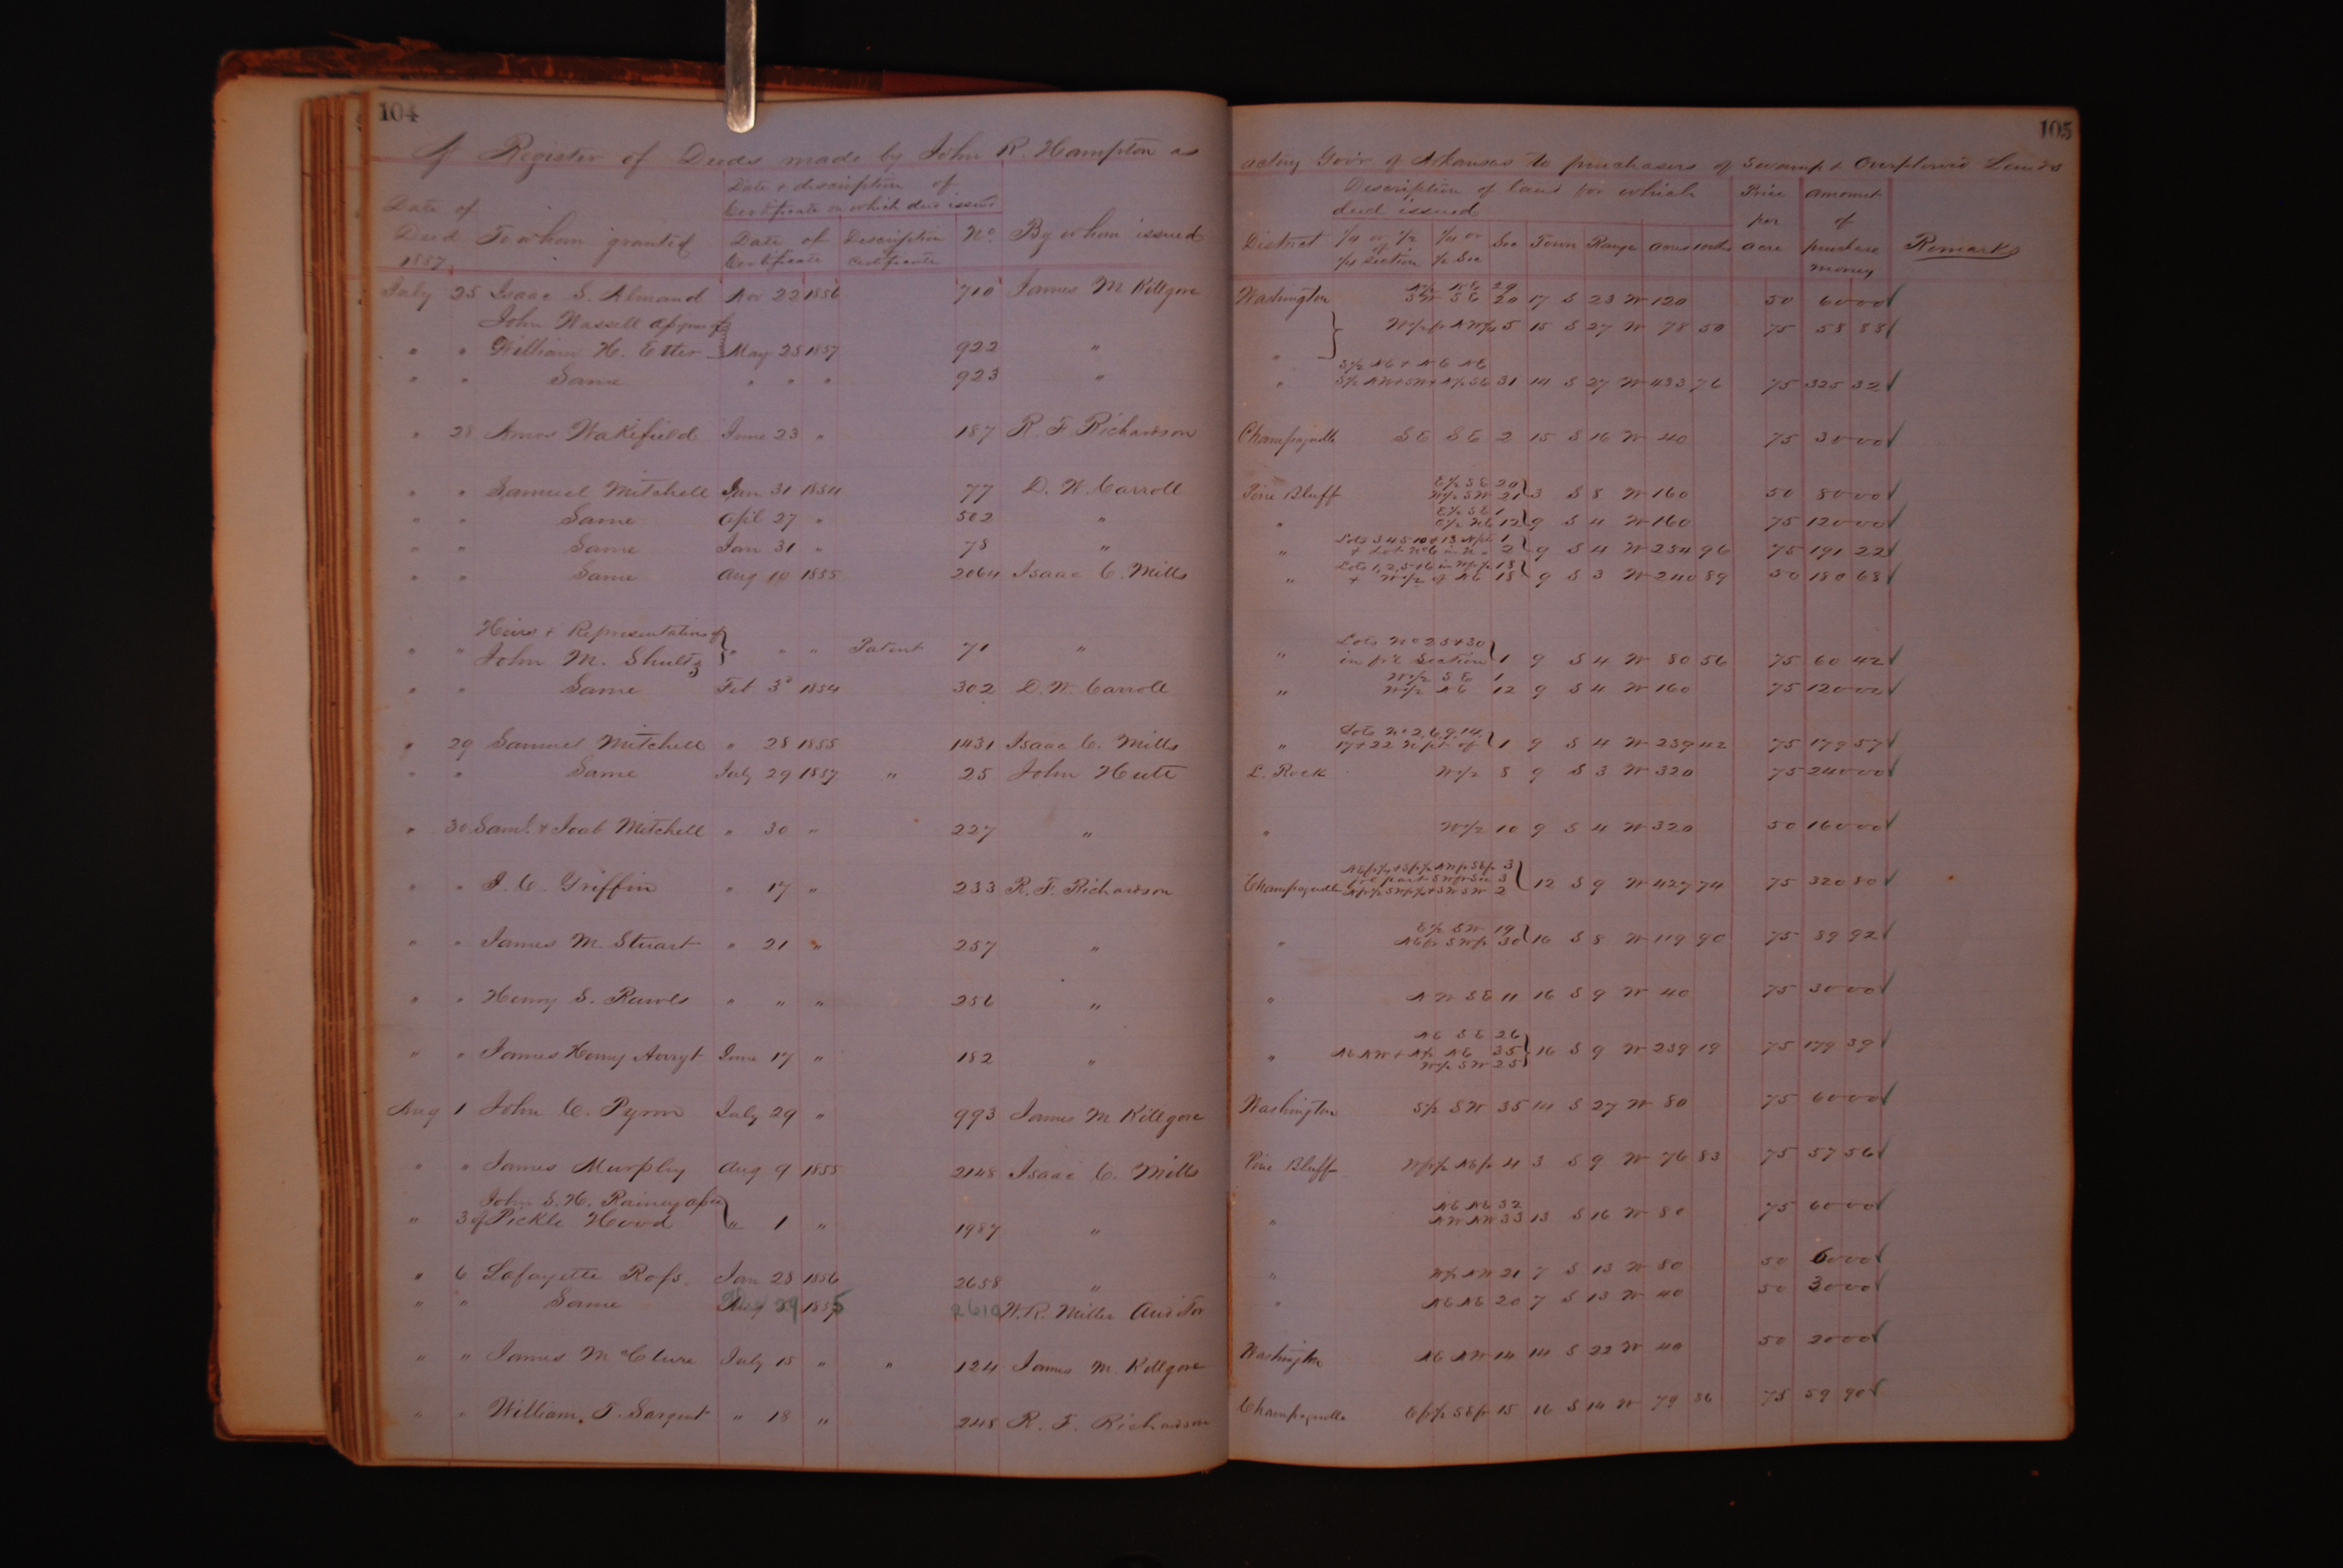 104
A Register of Deeds made by John R. Hampton as
acting Gov'r of Arkansas to purchasers of Swamp & Overflow'd Lands
105
Date of Deed 1857 To whom granted Date & description of Certificate on which deed issued Date of Certificate Description Certificate No. By whom issued
District 1/4 or 1/2 of 1/4 section 1/4 or 1/2 Sec Sec Town Range acres Price per acre amount of purchase money Remarks
July 25 Isaac S. Almand Nov 22 1856 710 James M Killgore Washington N1/2 NE 29 SW SE 20 17 S 23 W 120 50 60 00
John Wassell assignee of
" " William H. Etter May 25 1857 922 " " 5 15 S 27 W 78 50 75 58 88
" " Same " " " 923 " " S1/2 NE & NE NE
S1/2 NW & SW & N1/2 SE 31 14 S 27 W 433 76 75 325 32
" 28 Amos Wakefield June 23 " 187 R. F. Richardson Champagnolle SE SE 2 15 S 16 W 40 75 30 00
" " Samuel Mitchell Jan 31 1854 77 D. W. Carroll Pine Bluff E1/2 SE 20 W1/2 SW 21 3 S 8 W 160 50 80 00
" " Same Apl 27 " 502 " " E1/2 SE 1 E1/2 NE 12 9 S 4 W 160 75 120 00
" " Same Jan 31 " 78 " " Lots 3 4 5 10 & 13 1
2 9 S 4 W 254 96 75 191 22
" " Same Aug 10 1855 2064 Isaac C. Mills " Lots 1, 2, 5 18
& W1/2 of NE 18 9 S 3 W 240 89 50 180 68
Heirs & Representatives of
" " John M. Shultz " " " Patent 71 " " Lots No 25 & 30
in frl Section 1 9 S 4 W 80 56 75 60 42
" " Same Feb 3d 1854 302 D. W. Carroll " W1/2 SE 1 W1/2 NE 12 9 S 4 W 160 75 120 00
" 29 Samuel Mitchell " 28 1855 1431 Isaac C. Mills " Lots No 2, 6, 9, 14,
17 & 22 N pt of 1 9 S 4 W 239 42 75 179 57
" " Same July 29 1857 " 25 John Hutt L. Rock W1/2 8 9 S 3 W 320 75 240 00
" 30 Saml. & Joab Mitchell " 30 " 227 " " W1/2 10 9 S 4 W 320 50 160 00
" " J. C. Griffin " 17 " 233 R. F. Richardson Champagnolle 3 3 2 12 S 9 W 427 74 75 320 80
" " James M. Stuart " 21 " 257 " " E1/2 SW 19
30 16 S 8 W 119 90 75 89 92
" " Henry S. Rawls " " " 256 " " NW SE 11 16 S 9 W 40 75 30 00
" " James Henry June 17 " 182 " " NE SE 26
NE NW & N1/2 NE 35 16 S 9 W 239 19 75 179 39
W1/2 SW 25
Aug 1 John C. Pyron July 29 " 993 James M Killgore Washington S1/2 SW 35 14 S 27 W 80 75 60 00
" " James Murphy Aug 9 1855 2148 Isaac C. Mills Pine Bluff 4 3 S 9 W 76 83 75 57 56
John S. H. Rainey
" 3 of Pickle Hood " 1 " 1987 " " NE NE 32 NW NW 33 13 S 16 W 80 75 60 00
" 6 Lafayette Ross Jan 28 1856 2658 " " W1/2 NW 21 7 S 13 W 80 50 60 00
" " Same 29 1855 2610 W. R. Miller Auditor " NE NE 20 7 S 13 W 40 50 30 00
" " James McClure July 15 " " 124 James M. Killgore Washington NE NW 14 14 S 22 W 40 50 20 00
" " William T. Sargent " 18 " 248 R. F. Richardson Champagnolle 15 16 S 14 W 79 86 75 59 90